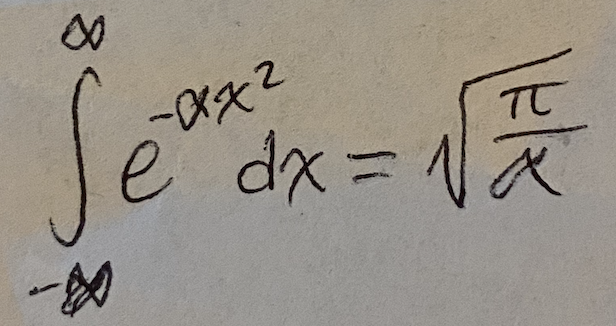 ∫_{-∞}^{∞} e^{-αx²} dx = √(π/α)